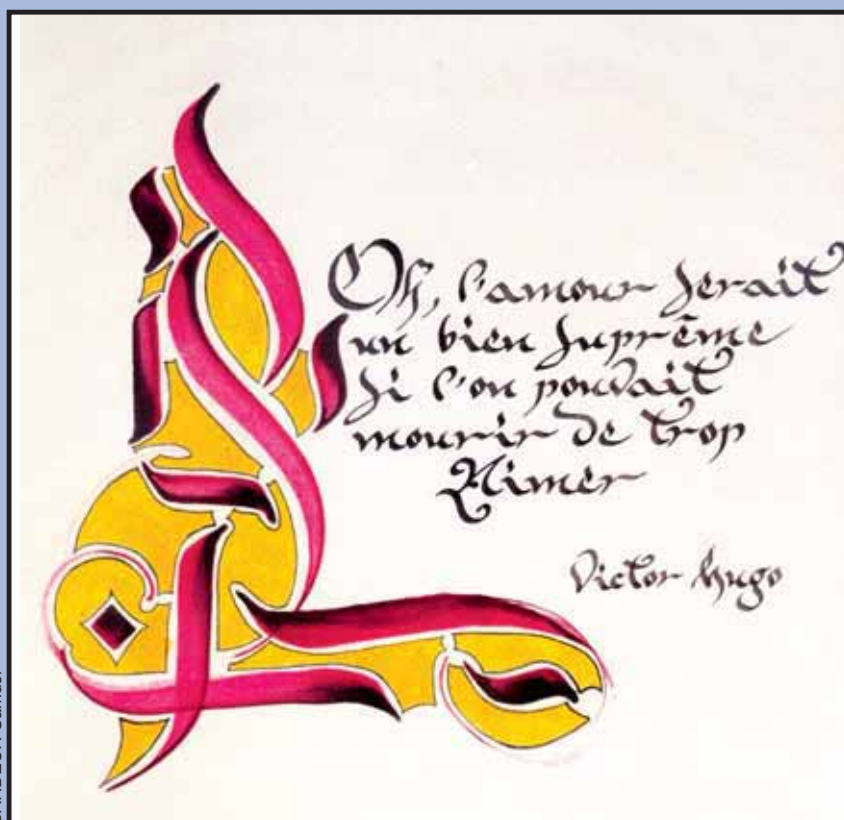 Oh, l'amour serait
un bien suprême
si l'on pouvait
mourir de trop
Aimer
Victor Hugo